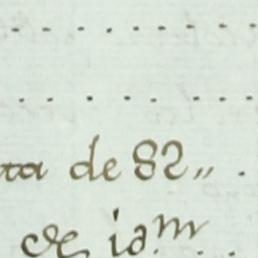 ta de 82,, .
de iam